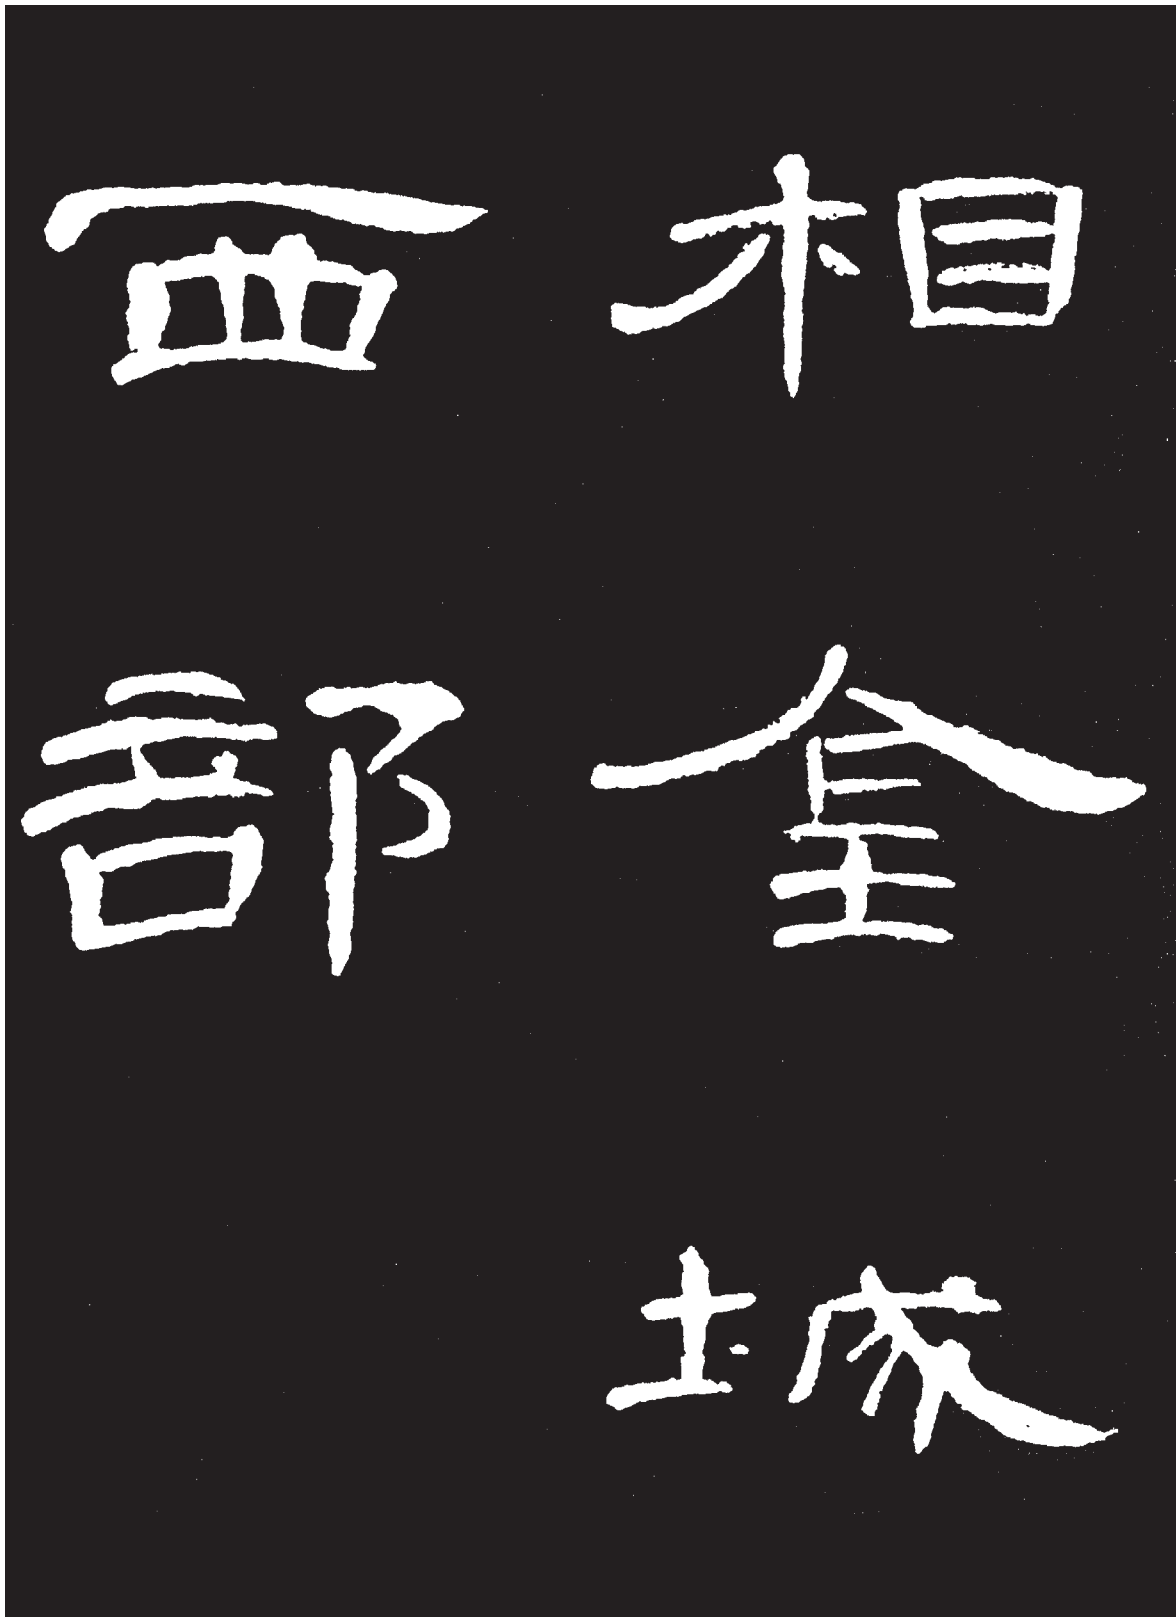 相金城
西部